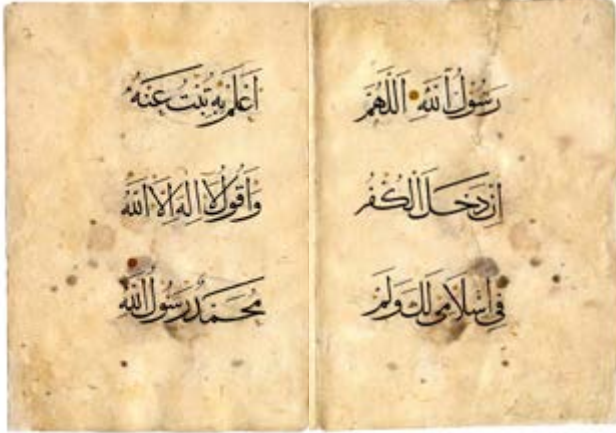 رَسُولُ اللهِ اَللَّهُمَّ
اِنْ دَخَلَ الْكُفْرُ
فِى اِسْلَامِى لَكَ وَلَمْ
اَعْلَمْ بِهِ تُبْتُ عَنْهُ
وَاَقُولُ لَا اِلٰهَ اِلَّا اللهُ
مُحَمَّدٌ رَسُولُ اللهِ